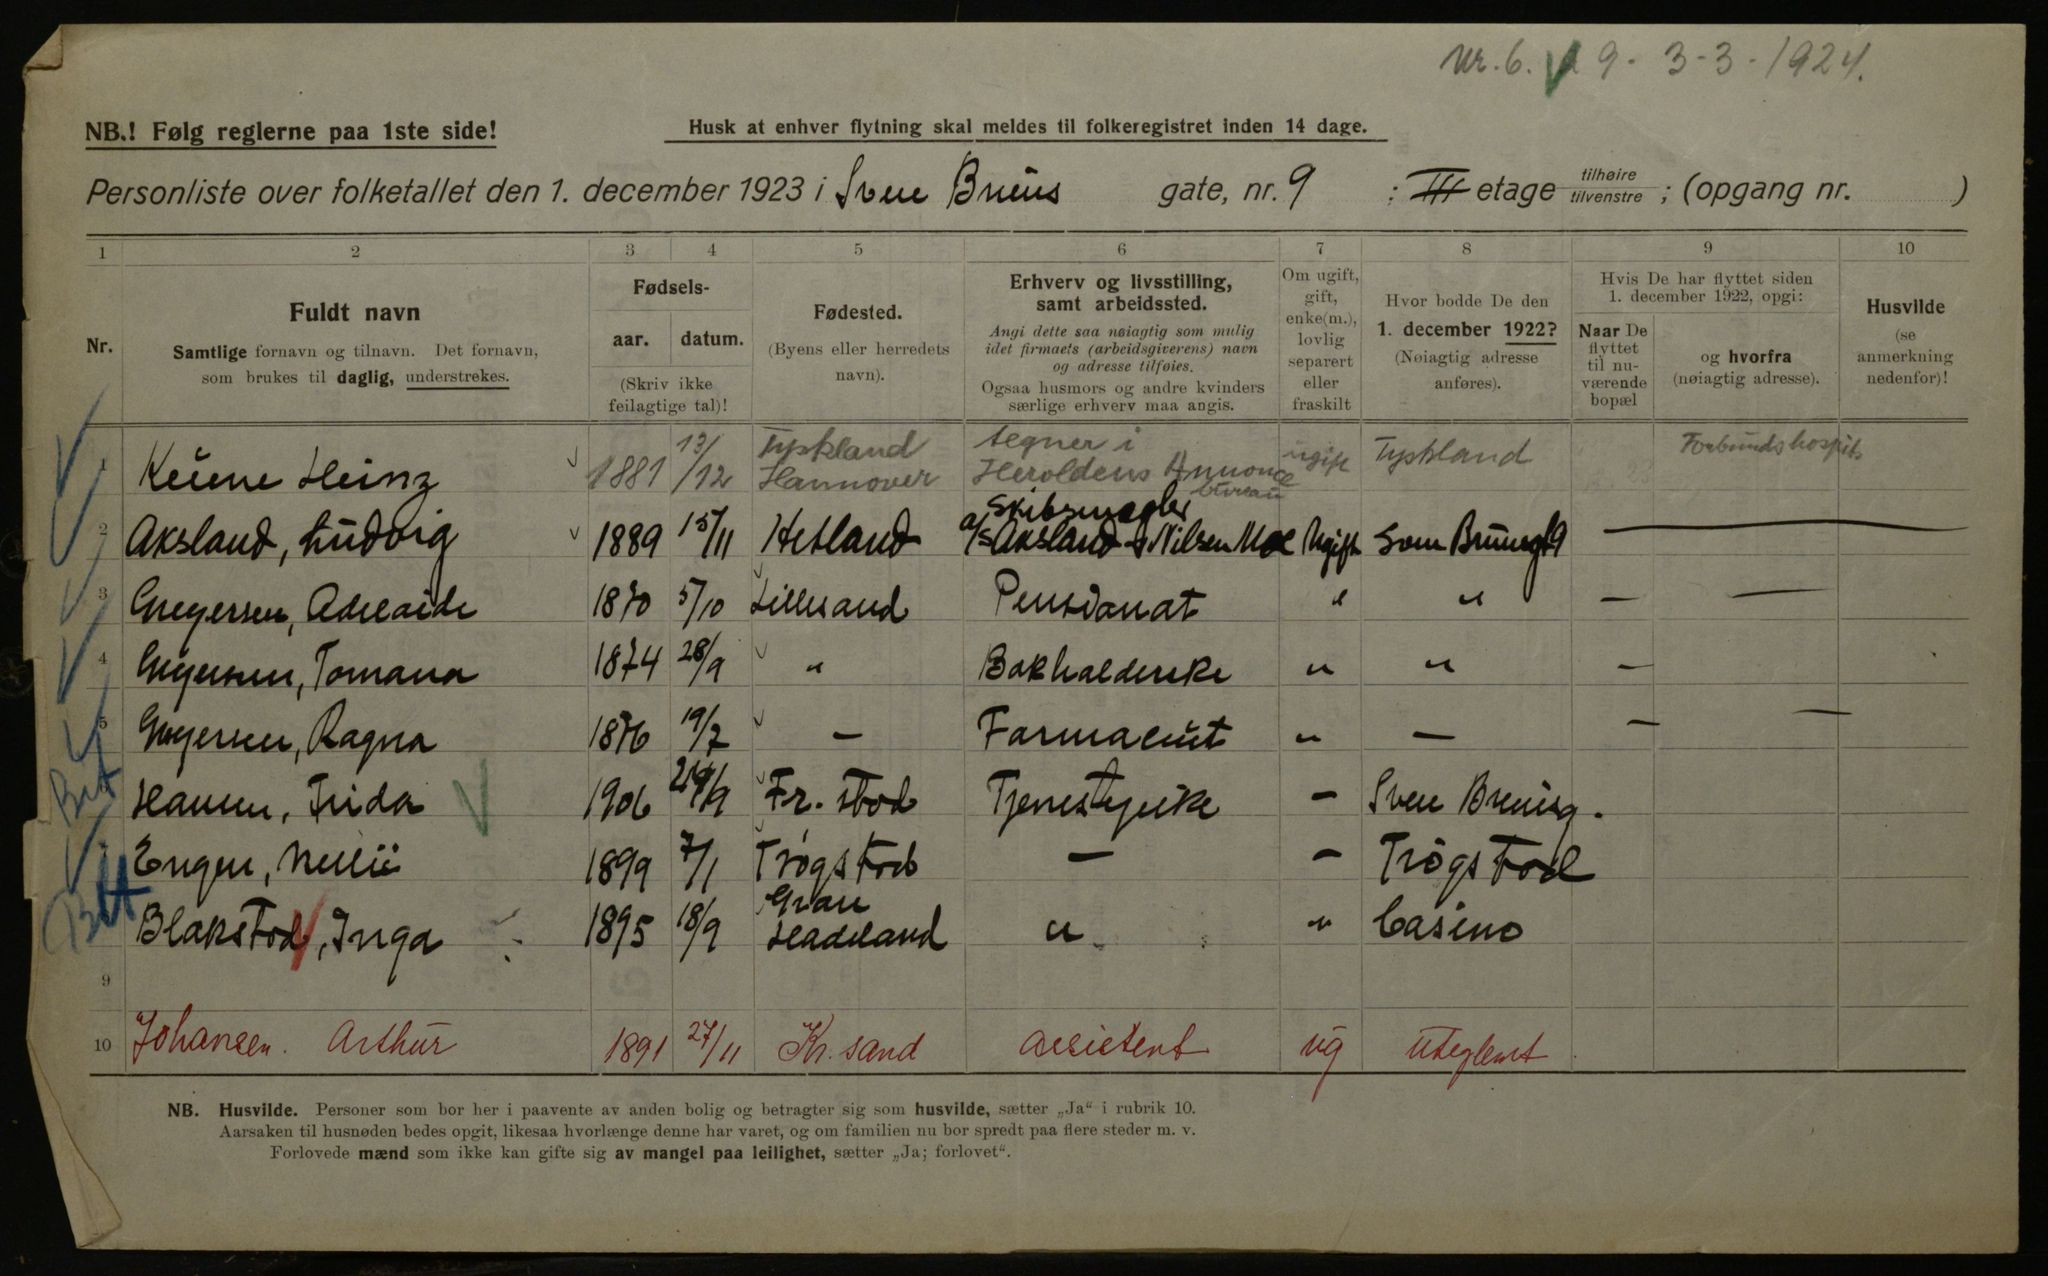 Nr. 6. 9. 3-3-1924.
NB.! Følg reglerne paa 1ste side!
Husk at enhver flytning skal meldes til folkeregistret inden 14 dage.
Personliste over folketallet den 1. december 1923 i Sven Bruns gate, nr. 9 : III etage tilhøire tilvenstre ; (opgang nr. )
1 2 3 4 5 6 7 8 9 10
Nr.
Fuldt navn
Samtlige fornavn og tilnavn. Det fornavn,
som brukes til daglig, understrekes.
Fødsels-
aar. datum.
(Skriv ikke
feilagtige tal)!
Fødested.
(Byens eller herredets
navn).
Erhverv og livsstilling,
samt arbeidssted.
Angi dette saa nøiagtig som mulig
idet firmaets (arbeidsgiverens) navn
og adresse tilføies.
Ogsaa husmors og andre kvinders
særlige erhverv maa angis.
Om ugift,
gift,
enke(m.),
lovlig
separert
eller
fraskilt
Hvor bodde De den
1. december 1922?
(Nøiagtig adresse
anføres).
Hvis De har flyttet siden
1. december 1922, opgi:
Naar De
flyttet
til nu-
værende
bopæl
og hvorfra
(nøiagtig adresse).
Husvilde
(se
anmerkning
nedenfor)!
1 Keune Heinz 1881 13/12 Tyskland Hannover tegner i Heroldens Annonce bureau ugift Tyskland Forbundshospits
2 Aksland, Ludvig 1889 15/11 Hetland Skibsmegler a/s Aksland & Nilsen Moe Ugift Sven Brunsgt 9 —
3 Gregersen, Adelaide 1870 5/10 Lillesand Pensionat " " — —
4 Gregersen, Tomana 1874 28/9 " Bokholderske " " —
5 Gregersen, Ragna 1876 19/7 — Farmaceut " — — —
Hansen, Frida 1906 24/9 Fr.stad Tjenestepike — Sven Brunsg.
7 Engen, Nelli 1899 7/1 Trøgstad — — Trøgstad
Blakstad, Inga 1895 18/9 Gran Hadeland " " Casino
9
10 Johansen. Arthur 1891 27/11 Kr.sand assistent ug uteglemt
NB. Husvilde. Personer som bor her i paavente av anden bolig og betragter sig som husvilde, sætter „Ja“ i rubrik 10.
Aarsaken til husnøden bedes opgit, likesaa hvorlænge denne har varet, og om familien nu bor spredt paa flere steder m. v.
Forlovede mænd som ikke kan gifte sig av mangel paa leilighet, sætter „Ja; forlovet“.